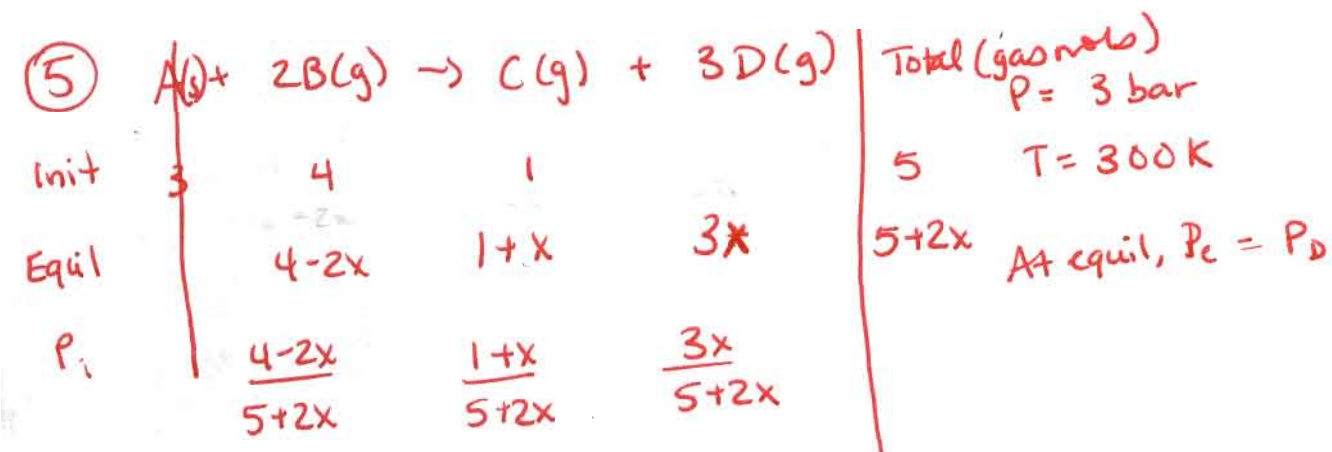 ⑤ A(s) + 2B(g) → C(g) + 3D(g) Total (gas mols)
P = 3 bar
Init 3 4 1 5 T = 300 K
Equil 4-2x 1+x 3x 5+2x At equil, Pc = PD
Pi 4-2x/5+2x 1+x/5+2x 3x/5+2x